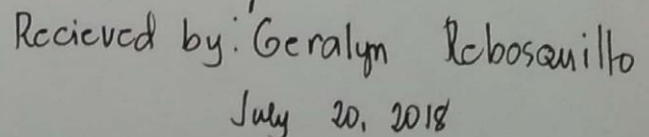 Recieved by: Geralyn Rebosquillo
July 20, 2018